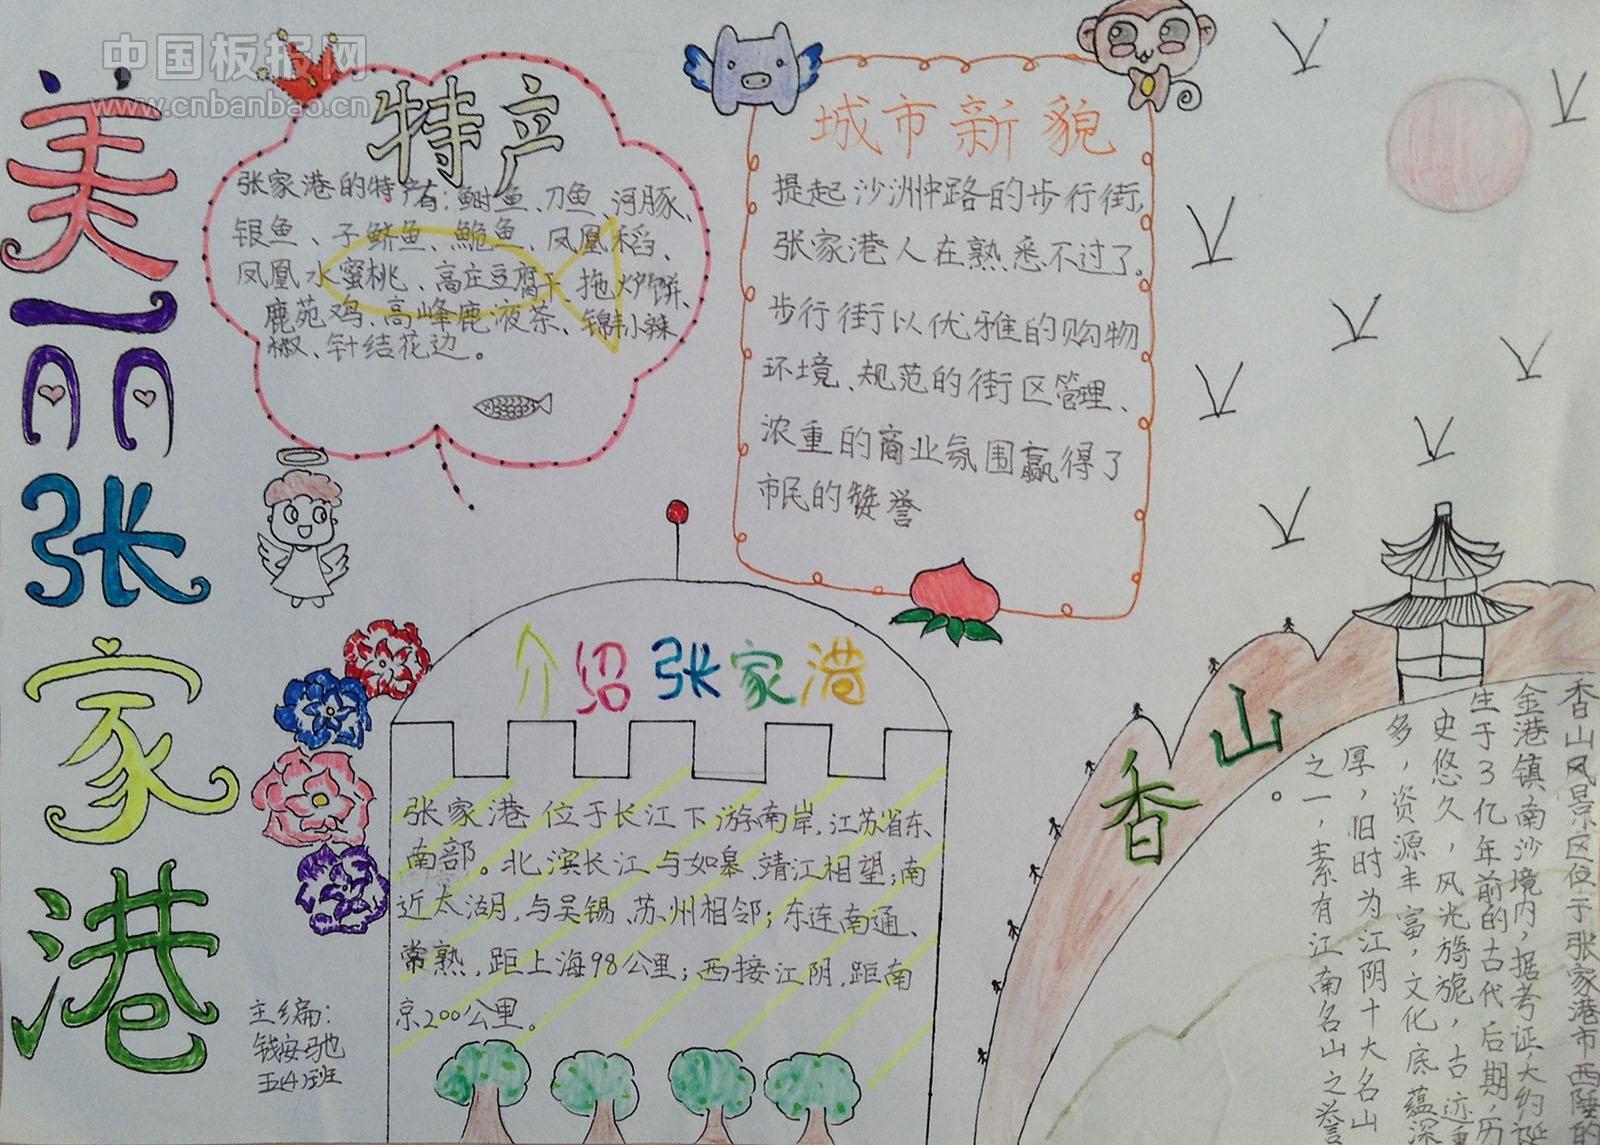 中国板报网
www.cnbanbao.cn
美丽张家港
特产
张家港的特产有:鲥鱼、刀鱼、河豚、
银鱼、子鲚鱼、鮠鱼、凤凰稻、
凤凰水蜜桃、高庄豆腐干、拖炉饼、
鹿苑鸡、高峰鹿液茶、锦丰小辣
椒、针结花边。
城市新貌
提起沙洲中路的步行街,
张家港人在熟悉不过了。
步行街以优雅的购物
环境、规范的街区管理、
浓重的商业氛围赢得了
市民的赞誉
介绍张家港
张家港位于长江下游南岸,江苏省东
南部。北滨长江与如皋、靖江相望;南
近太湖,与吴锡、苏州相邻;东连南通、
常熟,距上海98公里;西接江阴,距南
京200公里。
主编:
钱安驰
五(4)班
香山
香山风景区位于张家港市西陲的
金港镇南沙境内,据考证,大约诞
生于3亿年前的古代后期,历
史悠久,风光旖旎,古迹
多,资源丰富,文化底蕴深
厚,旧时为江阴十大名山
之一,素有江南名山之誉
。